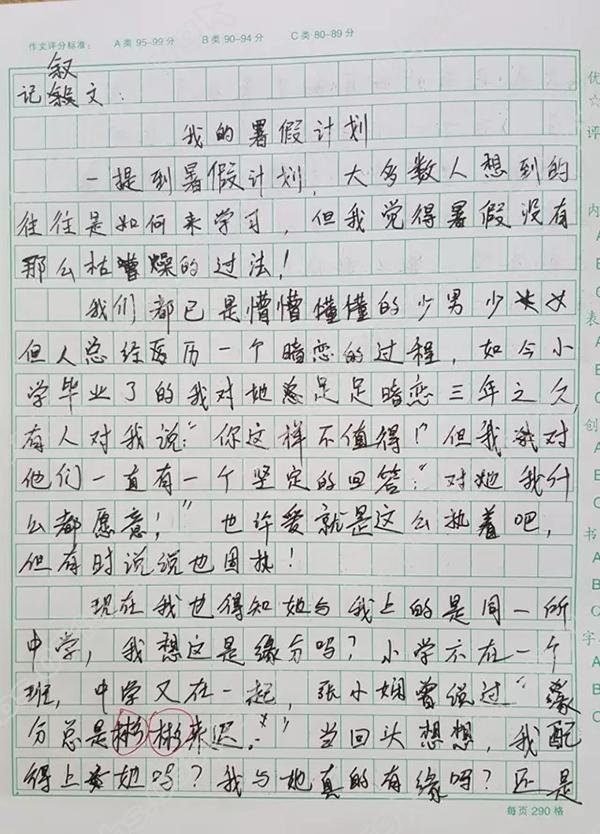 作文评分标准： A类 95-99分 B类 90-94分 C类 80-89分
叙
记 文：
我的暑假计划
一提到暑假计划，大多数人想到的
往往是如何来学习，但我觉得暑假没有
那么枯燥的过法！
我们都已是懵懵懂懂的少男少女
但人总经历一个暗恋的过程，如今小
学毕业了的我对她总足足暗恋三年之久，
有人对我说：“你这样不值得！”但我对
他们一直有一个坚定的回答：“对她我什
么都愿意！”也许爱就是这么执着吧，
但有时说说也固执！
现在我也得知她与我上的是同一所
中学，我想这是缘分吗？小学不在一个
班，中学又在一起，张小娴曾说过“缘
分总是彬彬来迟。”当回头想想，我配
得上她吗？我与她真的有缘吗？还是
每页 290 格
优
☆
评
内
A
B
C
表
A
B
C
创
A
B
C
书
A
B
C
字
A
B
C